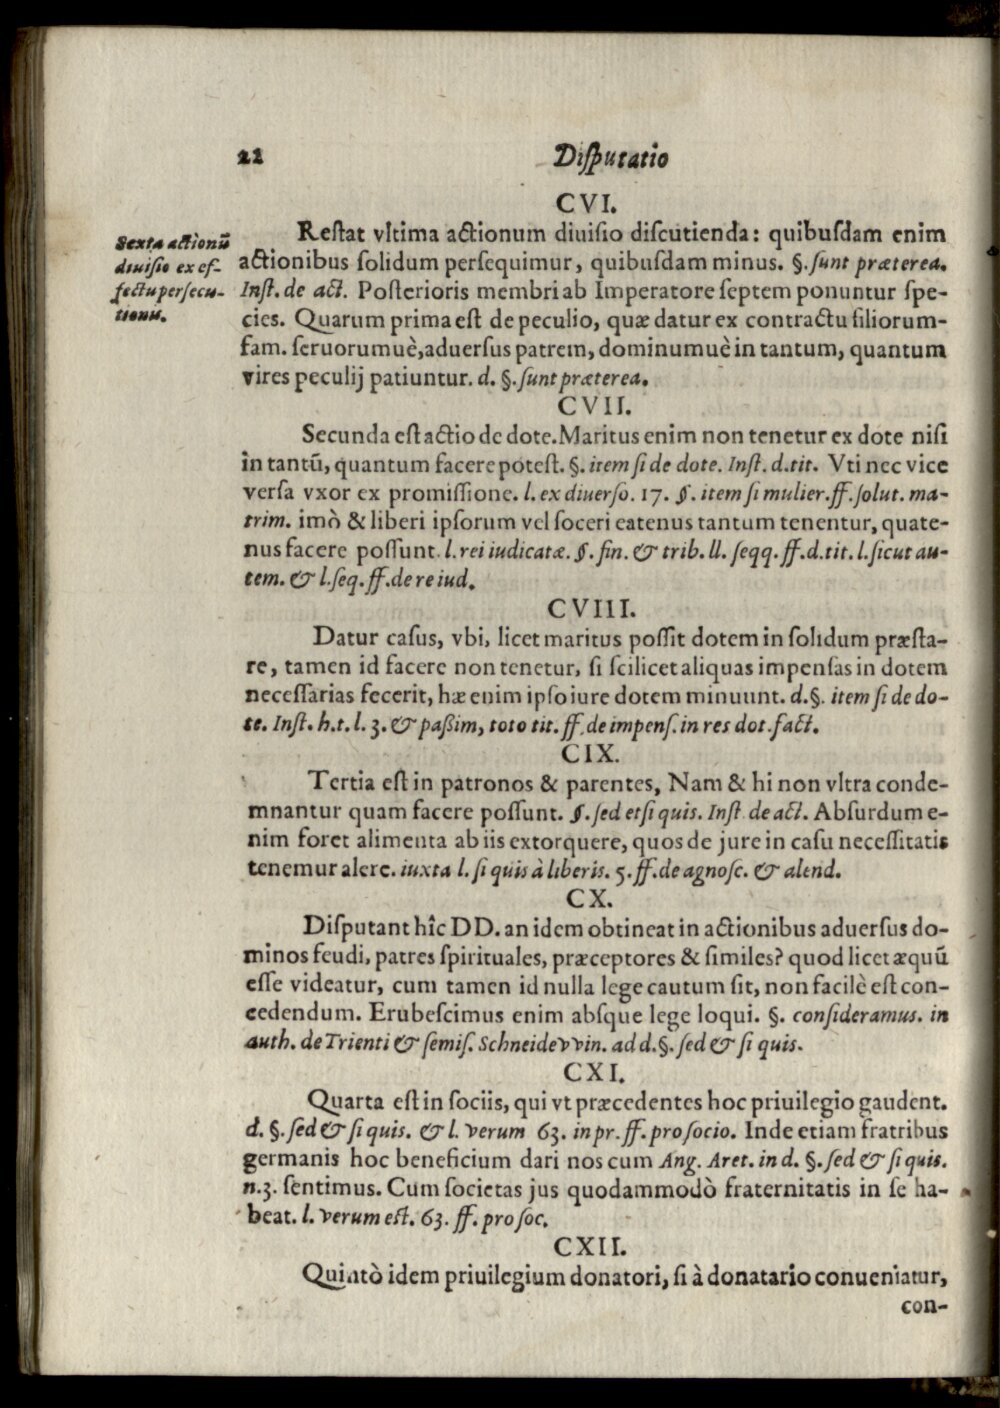 22
Disputatio
CVI.
Sexta actionū
diuisio ex ef-
fectu persecu-
tionis.
Restat vltima actionum diuisio discutienda: quibusdam enim
actionibus solidum persequimur, quibusdam minus. §. sunt præterea.
Inst. de act. Posterioris membri ab Imperatore septem ponuntur spe-
cies. Quarum prima est de peculio, quæ datur ex contractu filiorum-
fam. seruorumuè, aduersus patrem, dominumuè in tantum, quantum
vires peculij patiuntur. d. §. sunt præterea.
CVII.
Secunda est actio de dote. Maritus enim non tenetur ex dote nisi
in tantū, quantum facere potest. §. item si de dote. Inst. d. tit. Vti nec vice
versa vxor ex promissione. l. ex diuerso. 17. §. item si mulier. ff. solut. ma-
trim. imò & liberi ipsorum vel soceri eatenus tantum tenentur, quate-
nus facere possunt. l. rei iudicatæ. §. fin. & trib. ll. seqq. ff. d. tit. l. sicut au-
tem. & l. seq. ff. de re iud.
CVIII.
Datur casus, vbi, licet maritus possit dotem in solidum præsta-
re, tamen id facere non tenetur, si scilicet aliquas impensas in dotem
necessarias fecerit, hæ enim ipso iure dotem minuunt. d. §. item si de do-
te. Inst. h. t. l. 3. & paßim, toto tit. ff. de impens. in res dot. fact.
CIX.
Tertia est in patronos & parentes, Nam & hi non vltra conde-
mnantur quam facere possunt. §. sed etsi quis. Inst. de act. Absurdum e-
nim foret alimenta ab iis extorquere, quos de jure in casu necessitatis
tenemur alere. iuxta l. si quis à liberis. 5. ff. de agnosc. & alend.
CX.
Disputant hîc DD. an idem obtineat in actionibus aduersus do-
minos feudi, patres spirituales, præceptores & similes? quod licet æquū
esse videatur, cum tamen id nulla lege cautum sit, non facilè est con-
cedendum. Erubescimus enim absque lege loqui. §. consideramus. in
auth. de Trienti & semis. Schneidevvin. ad d. §. sed & si quis.
CXI.
Quarta est in sociis, qui vt præcedentes hoc priuilegio gaudent.
d. §. sed & si quis. & l. verum 63. in pr. ff. pro socio. Inde etiam fratribus
germanis hoc beneficium dari nos cum Ang. Aret. in d. §. sed & si quis.
n. 3. sentimus. Cum societas jus quodammodò fraternitatis in se ha-
beat. l. verum est. 63. ff. pro soc.
CXII.
Quintò idem priuilegium donatori, si à donatario conueniatur,
con-